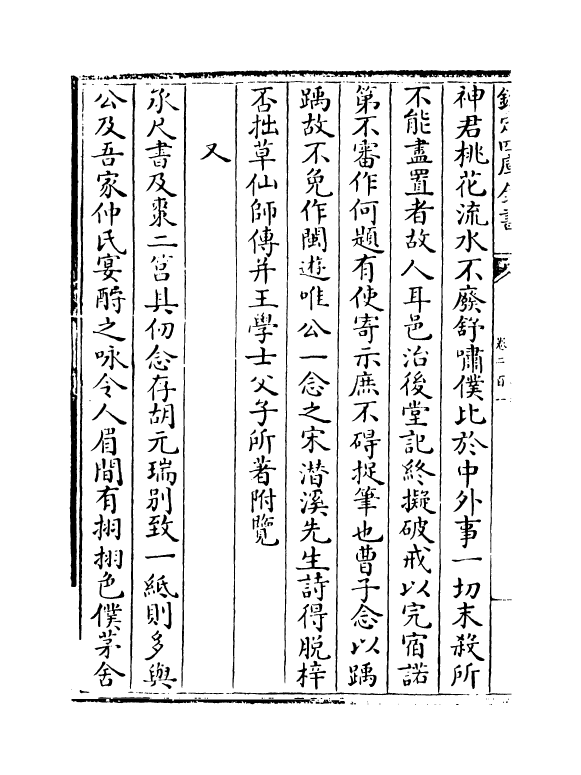 欽定四庫全書
卷二百一
神君桃花流水不廢舒嘯僕比於中外事一切末殺所
不能盡置者故人耳邑治後堂記終擬破戒以完宿諾
第不審作何題有使寄示庶不碍捉筆也曹子念以踽
踽故不免作閩遊唯公一念之宋潛溪先生詩得脫梓
否拙草仙師傳并王學士父子所著附覽
又
承尺書及棗二笤具仞念存胡元瑞別致一紙則多與
公及吾家仲氏宴酧之咏令人眉間有栩栩色僕茅舍